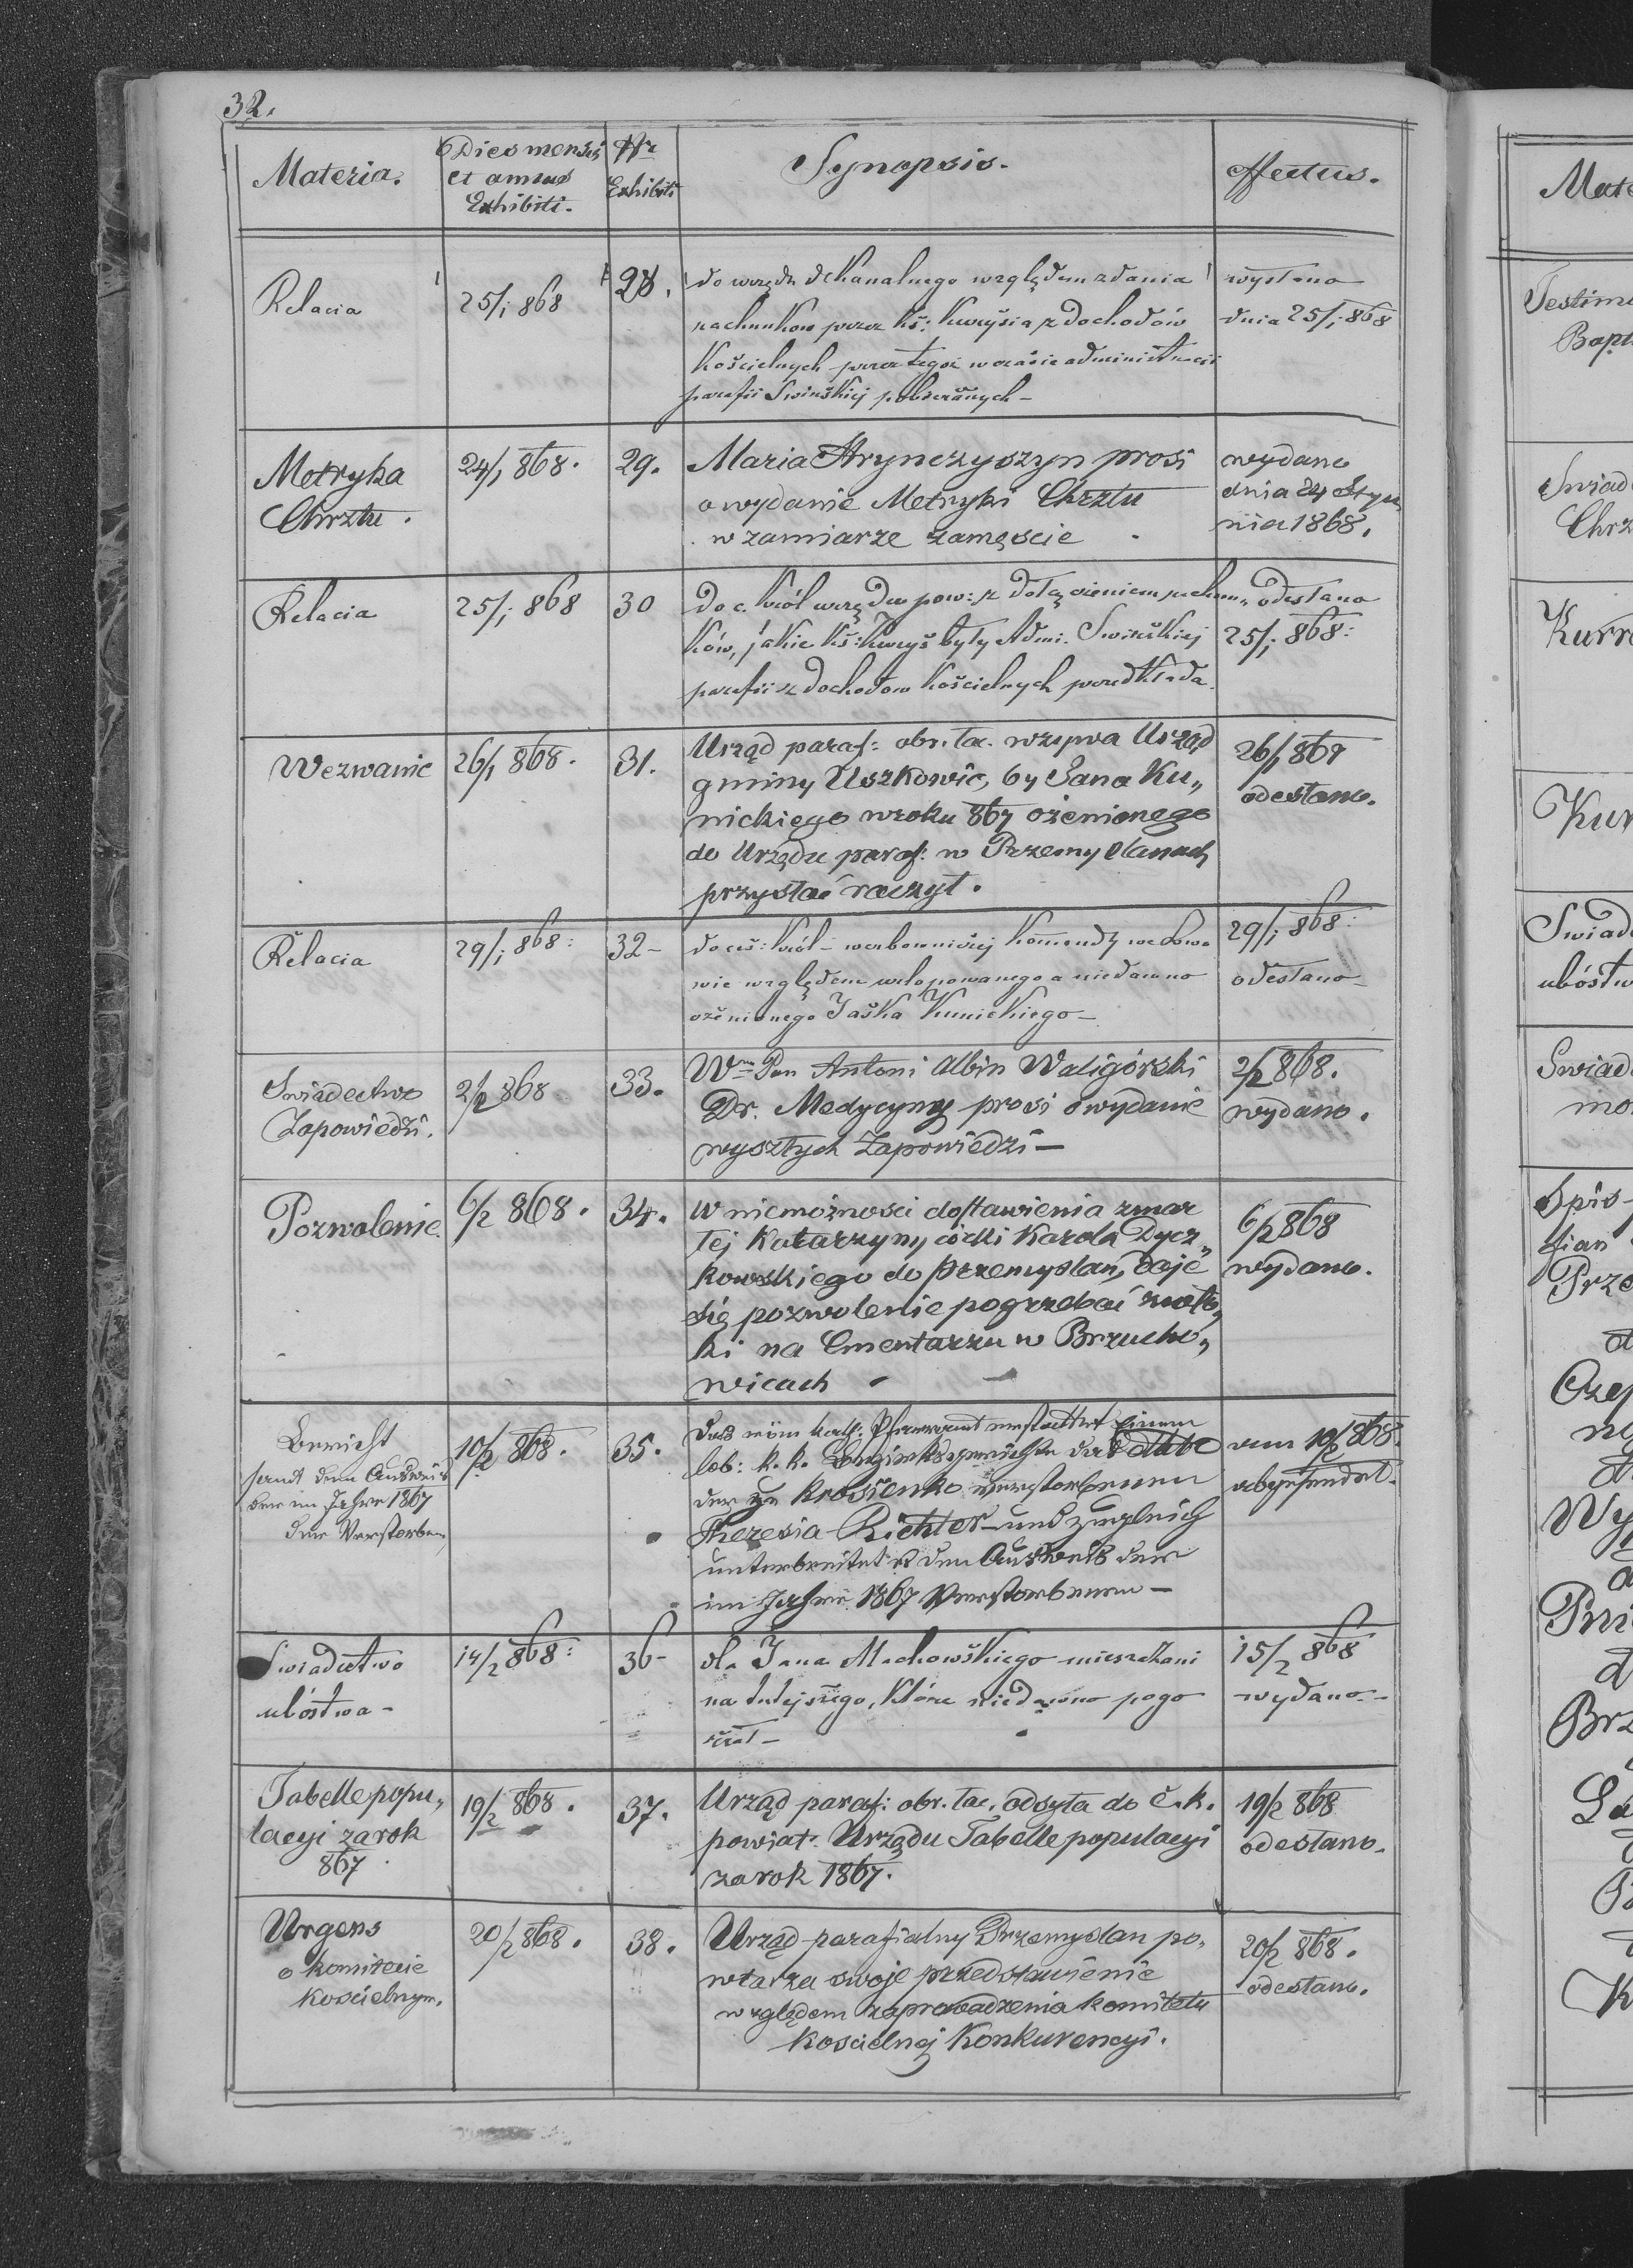 32.
Materia.
Dies mensis
et annus
Exhibiti.
Nr
Exhibiti
Synopsis.
Effectus.
Relacia
25/1 868
28.
do urzędu dekanalnego względem zdania
rachunków przez kś: Kurysia z dochodów
Kościelnych przez tegoż w czasie administracii
parafii Swirskiej pobieranych –
wysłano
dnia 25/1 868
Metryka
Chrztu.
24/1 868.
29.
Maria Hrynczyszyn prosi
o wydanie Metryki Chrztu
w zamiarze zamęscie
wydano
dnia 24 Stycz
nia 1868.
Relacia
25/1 868
30
Do c. król urzędu pow: z dołączeniem rachun„
ków, jakie kś: Kuryś były Admi. Swirskiej
parafii z dochodow kościelnych przedkłada.
odesłano
25/1 868:
Wezwanie
26/1 868.
31.
Urząd paraf: obr. łac. wzywa Urząd
gminy Uszkowic, by Jana Ku„
nickiego w roku 867 ożenionego
do Urzędu paraf: w Przemyslanach
przysłać raczył.
26/1 868
odesłano.
Relacia
29/1 868:
32–
do ceś: król – werbowniczej Komendy we Lwo
wie względem urlopowanego a niedawno
ożenionego Jaśka Kunickiego –
29/1 868:
odesłano –
Swiadectwo
Zapowiedzi.
2/2 868
33.
Wny Pan Antoni Albin Waligórski
Dr. Medycyny prosi o wydanie
wyszłych Zapowiedzi –
2/2 868.
wydano.
Pozwolenie.
6/2 868.
34.
W niemożnosci dostawienia zmar
łej Katarzyny córki Karola Dycz„
kowskiego do Przemyslan, daje
się pozwolenie pogrzebać zwło„
ki na Cmentarzu w Brzucho„
wicach
6/2 868
wydano.
Bericht
sandt den Ausweis
der im Jahre 1867
der Verstorben
10/2 868.
35.
Das röm kath: Pfarramt erstattet einem
löb: k. k. Bezirksgerichte das
der zu Krosienko verstorbenen
Theresia Richter – und zugleich
unterbreitet es den Ausweis der
im Jahre 1867 Verstorbenen –
am 10/2 868.
abgesendet.
Swiadectwo
ubóstwa –
14/2 868:
36–
dla Jana Machowskiego mieszkani
na tutejszego, które niedawno pogo
rzał –
15/2 868
wydano –
Tabelle popu„
lacyi za rok
867
19/2 868.
37.
Urząd paraf: obr. łac. odsyła do c. k.
powiat. Urzędu Tabelle populacyi
za rok 1867.
19/2 868
odesłano.
Urgens
o komitecie
kościelnym.
20/2 868.
38.
Urząd parafialny Przemyslan po„
wtarza swoje przedstawienie
względem zaprowadzenia komitetu
Koscielnej Konkurencyi.
20/2 868.
odesłano.